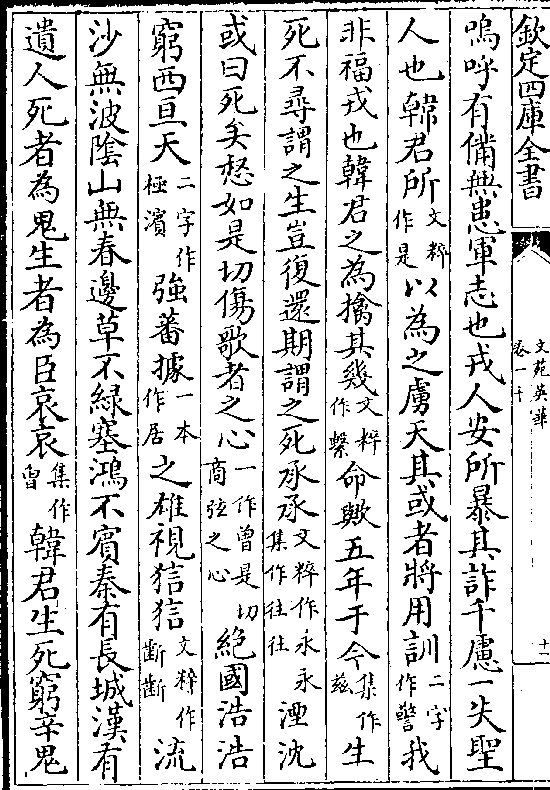 欽定四庫全書
文苑英華
卷一千
十一
嗚呼有備無患軍志也戎人安所暴其詐千慮一失聖
人也韓君所文粹作是以為之虜天其或者將用訓二字作警我
非福戎也韓君之為擒其幾文粹作繫命歟五年于今集作茲生
死不尋謂之生豈復還期謂之死承承文粹作永永集作往往湮沈
或曰死矣愁如是切傷歌者之心一作曾是切商弦之心絕國浩浩
窮西亘天二字作極濱強蕃據一本作居之雄視狺狺文粹作齗齗流
沙無波陰山無春邊草不綠塞鴻不賓秦有長城漢有
遺人死者為鬼生者為臣哀哀集作曾韓君生死窮辛鬼